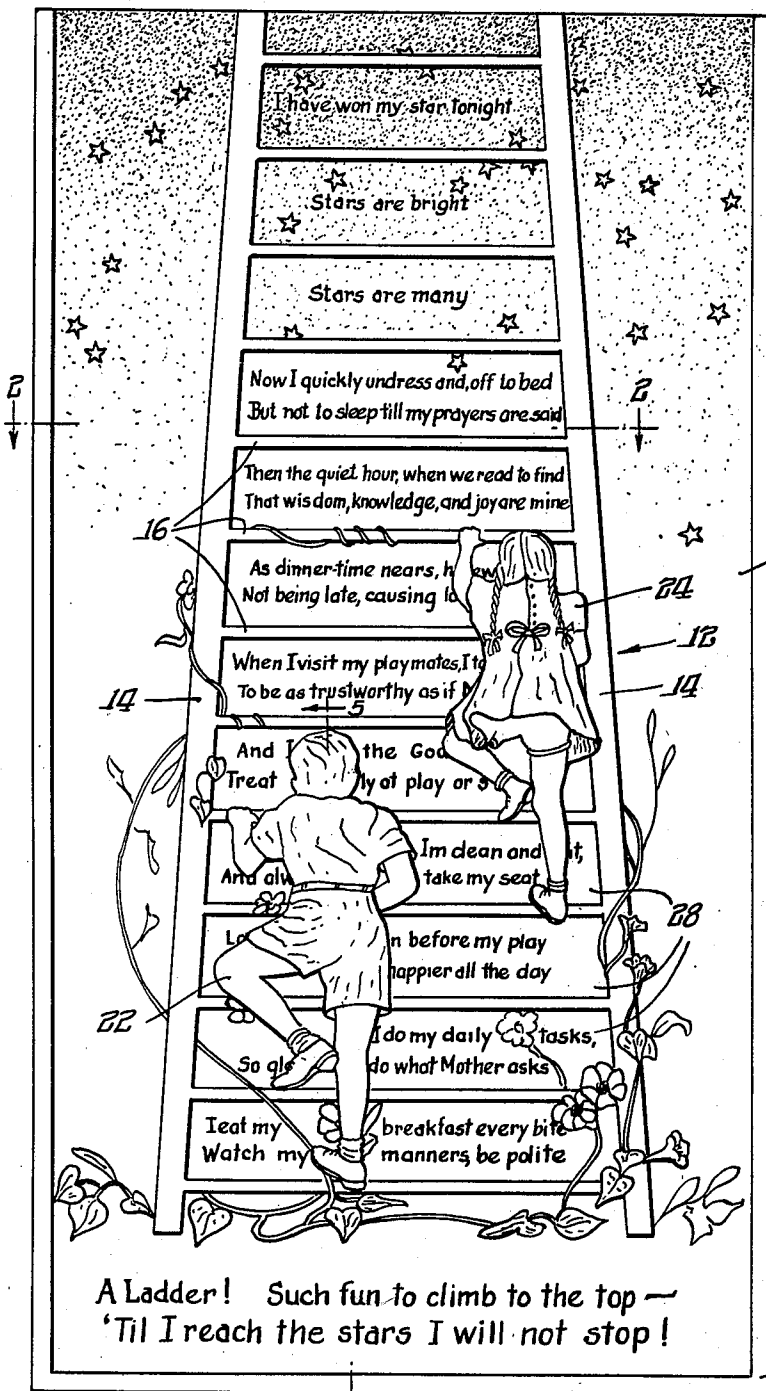 I have won my star tonight
Stars are bright
Stars are many
Now I quickly undress and, off to bed
But not to sleep till my prayers are said
2
2
Then the quiet hour, when we read to find
That wisdom, knowledge, and joy are mine
16
As dinner-time nears, h
Not being late, causing
24
12
When I visit my playmates, I
To be as trustworthy as if
14
14
5
And the
Treat at play or
Im clean and
take my seat
28
before my play
happier all the day
22
I do my daily tasks,
So do what Mother asks
I eat my breakfast every bite
Watch my manners, be polite
A Ladder! Such fun to climb to the top —
'Til I reach the stars I will not stop!